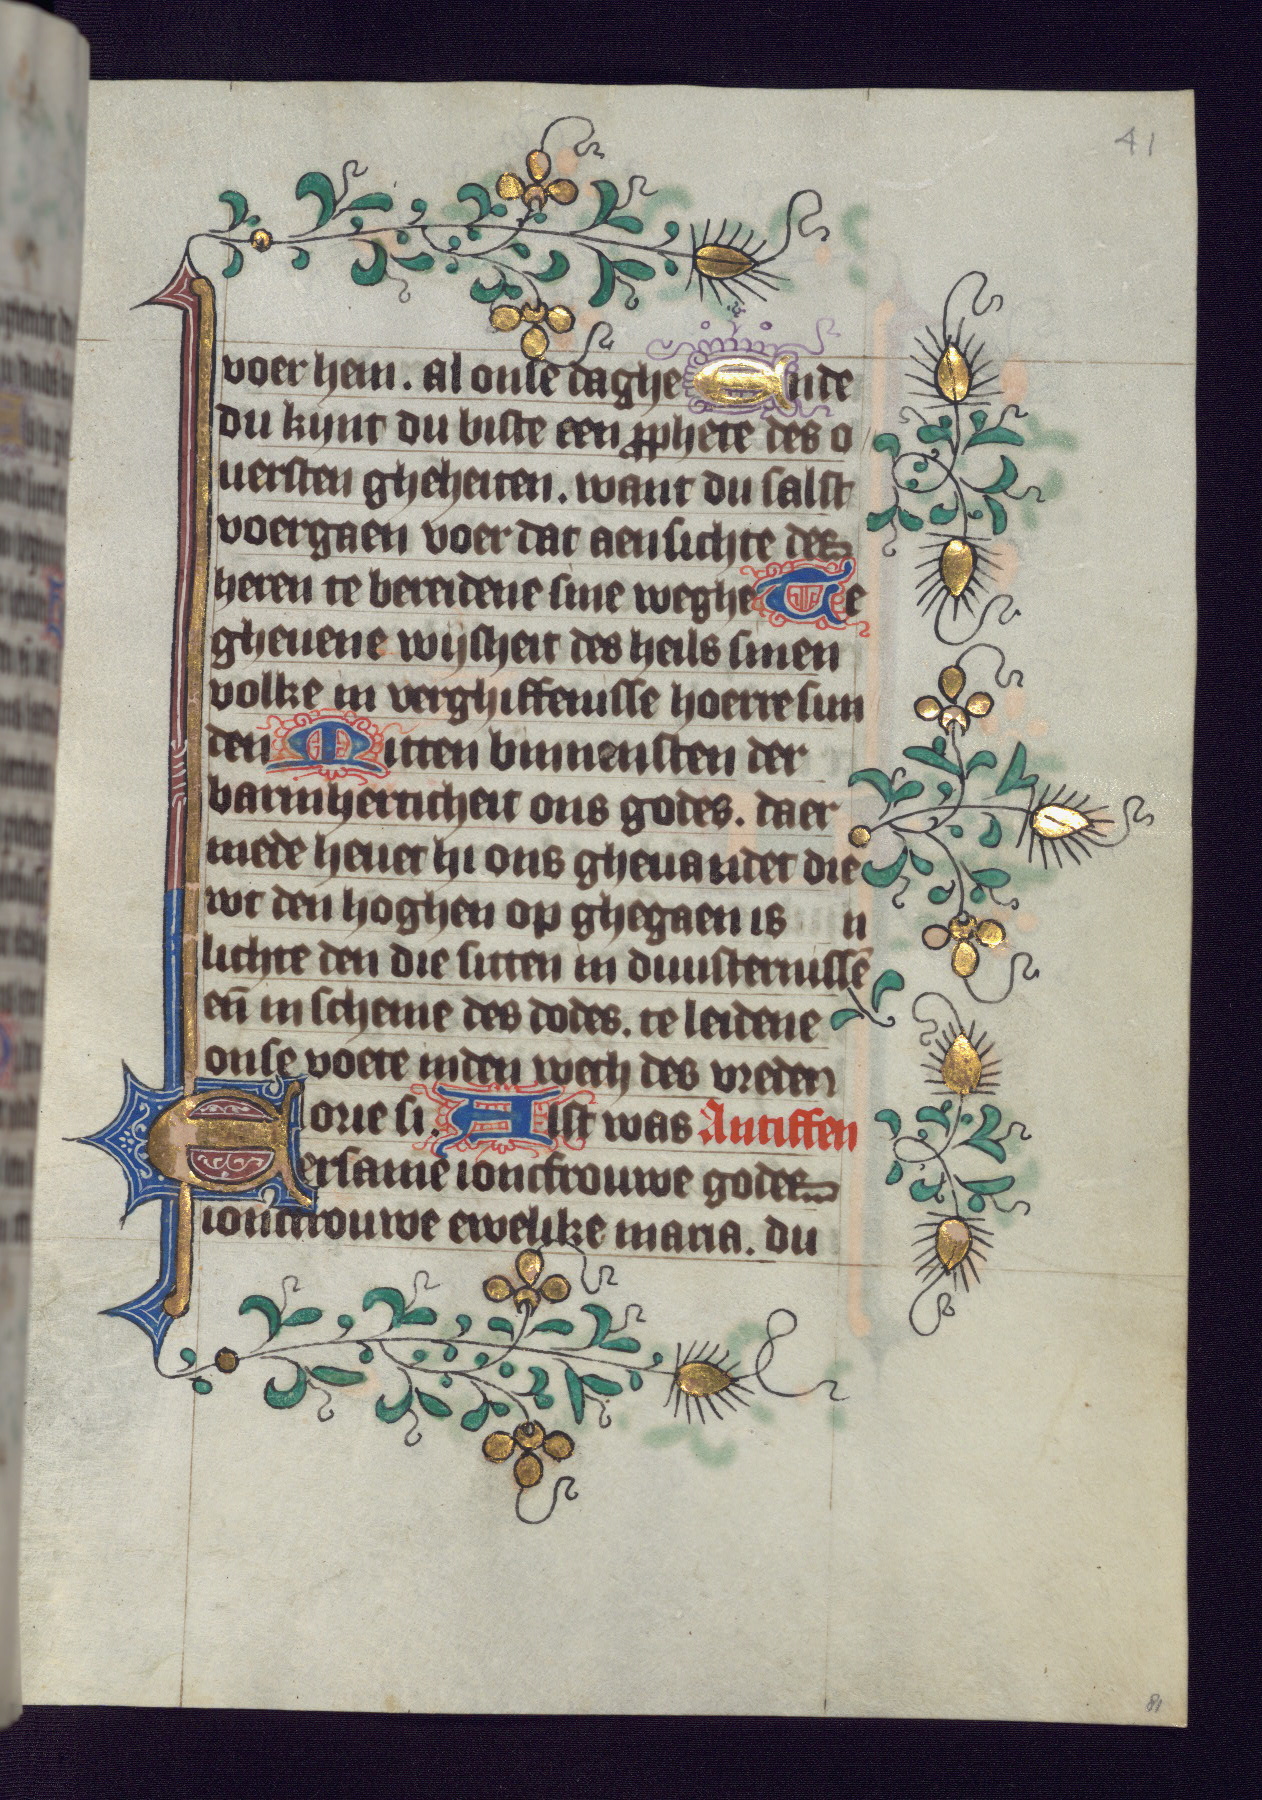 41
voer hem. Al onse daghe Ende
du kynt du biste een prophete des o
uersten gheheiten. want du salst
voergaen voer dat aensichte des
heren te bereidene sine weghe Te
gheuene wijsheit des heils sinen
volke in verghiffenisse hoerre sun
den Mitten binnensten der
barmherticheit ons godes. daer
mede heuet hi ons gheuandet die
wt den hoghen op ghegaen is
lichte den die sitten in duusternissē
eñ in scheme des dodes. te leidene
onse voete inden wech des vreden
Glorie si. Alst was Antiffen
Eersame ioncfrouwe godes
ioncfrouwe ewelike maria. du
81